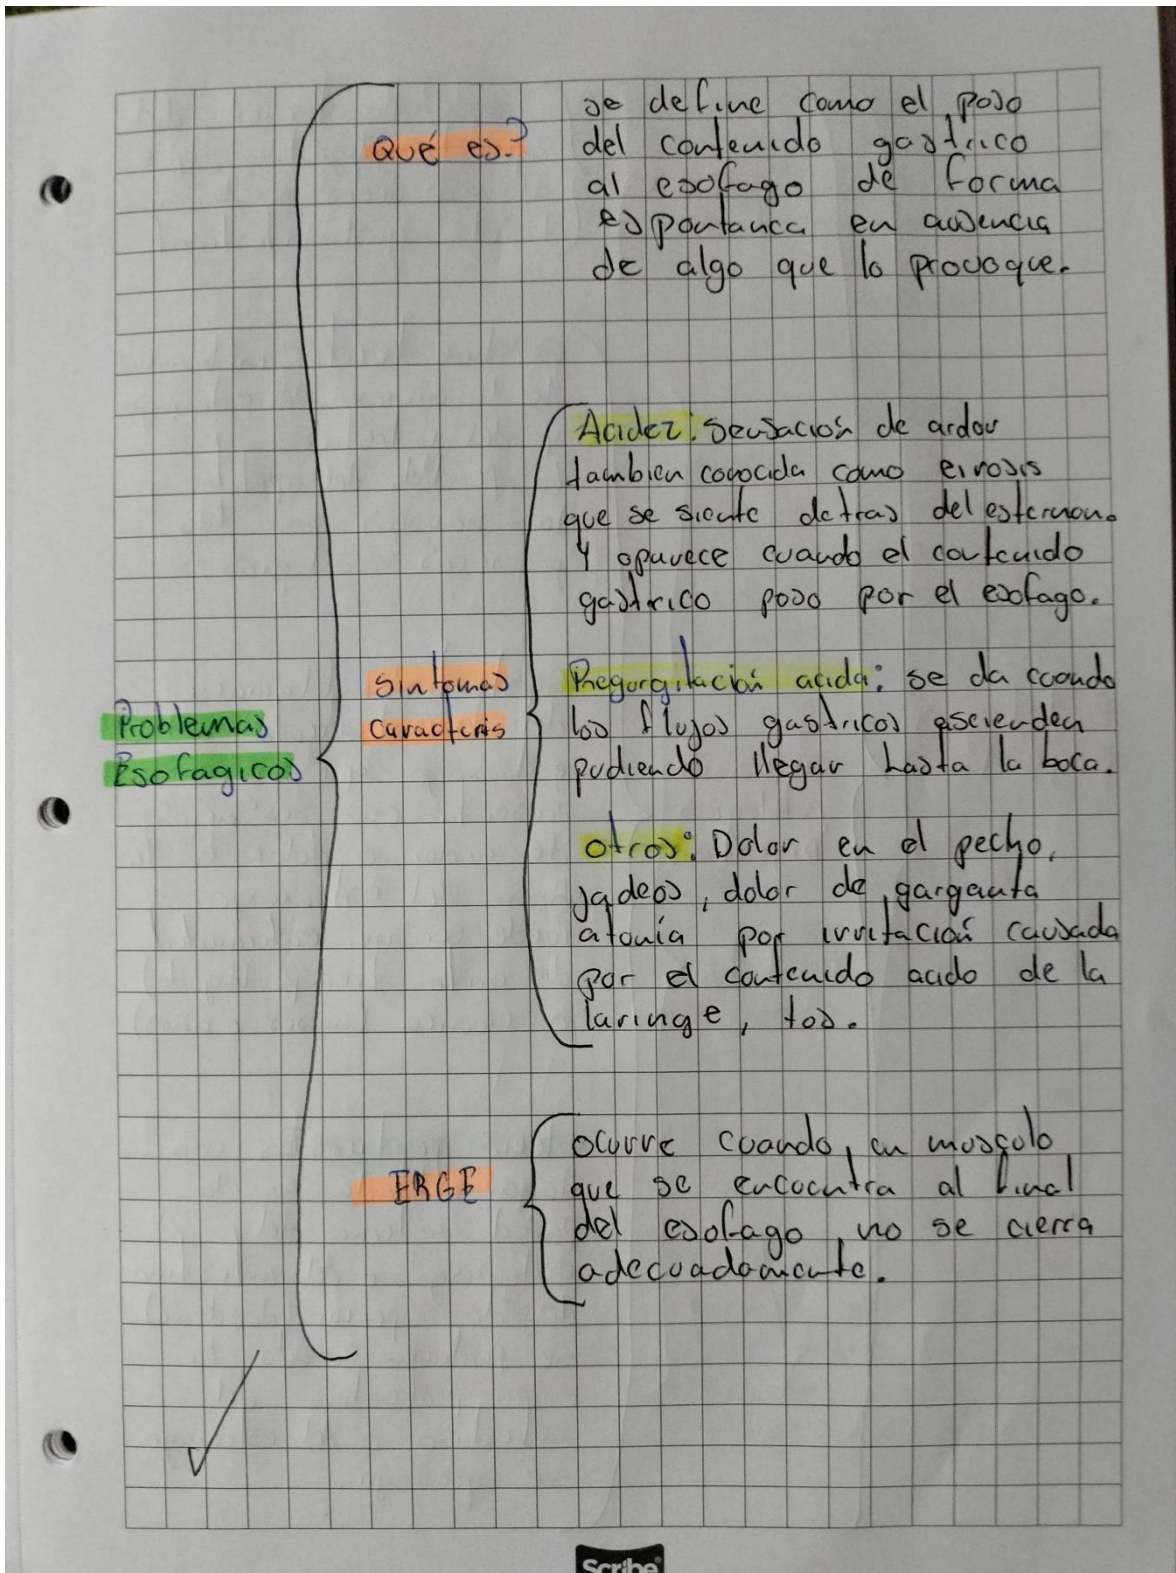 Qué es.?
se define como el paso
del contenido gastrico
al esofago de forma
espontanea en ausencia
de algo que lo provoque.
Problemas
Esofagicos
Sintomas
Caracteris
Acidez: Sensación de ardor
tambien conocida como eirosis
que se siente detras del esternon.
Y aparece cuando el contenido
gastrico paso por el esofago.
Regorgitación acida: se da cuando
los flujos gastricos ascienden
pudiendo llegar hasta la boca.
otros: Dolor en el pecho,
jadeos, dolor de garganta
afonía por irritación causada
por el contenido acido de la
laringe, tos.
ERGE
ocurre cuando, un musculo
que se encuentra al final
del esofago, no se cierra
adecuadamente.
Scribe